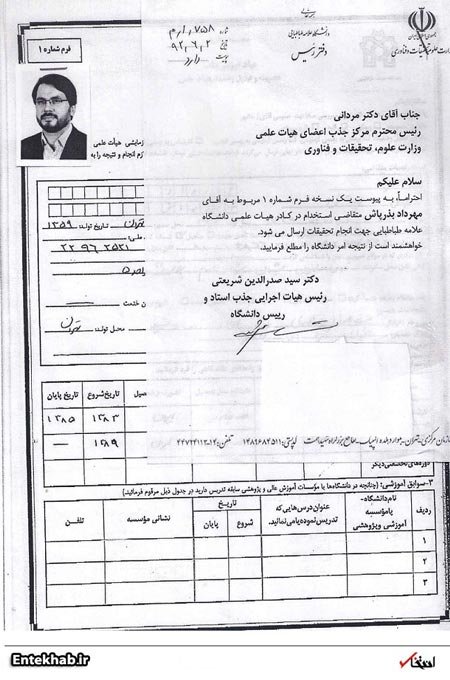 جمهوری اسلامی ایران
وزارت علوم، تحقیقات و فناوری
دانشگاه علامه طباطبایی
دفتر رئیس
شماره
تاریخ ۹۲,۶,۲
پیوست دارد
فرم شماره ۱
جناب آقای دکتر مردانی
رئیس محترم مرکز جذب اعضای هیات علمی
وزارت علوم، تحقیقات و فناوری
سلام علیکم
احتراماً، به پیوست یک نسخه فرم شماره ۱ مربوط به آقای
مهرداد بذرپاش متقاضی استخدام در کادر هیات علمی دانشگاه
علامه طباطبایی جهت انجام تحقیقات ارسال می شود.
خواهشمند است از نتیجه امر دانشگاه را مطلع فرمایید.
دکتر سید صدرالدین شریعتی
رئیس هیات اجرایی جذب استاد و
رییس دانشگاه
آزمایشی هیأت علمی
انجام و نتیجه را به
تهران تاریخ تولد: ۱۳۵۹
خدمت
محل تولد: تهران
تاریخ شروع تاریخ پایان
۱۳۸۳ ۱۳۸۵
۱۳۸۹ —
دوره‌های تخصصی دیگر
۳-سوابق آموزشی: (چنانچه در دانشگاه‌ها یا مؤسسات آموزش عالی و پژوهشی سابقه تدریس دارید در جدول ذیل مرقوم فرمائید.)
ردیف
نام دانشگاه- یا مؤسسه آموزشی و پژوهشی
عنوان درس‌هایی که تدریس نموده یا می نمائید.
تاریخ
شروع پایان
نشانی مؤسسه
تلفن
۱
۲
۳
Entekhab.ir
انتخاب